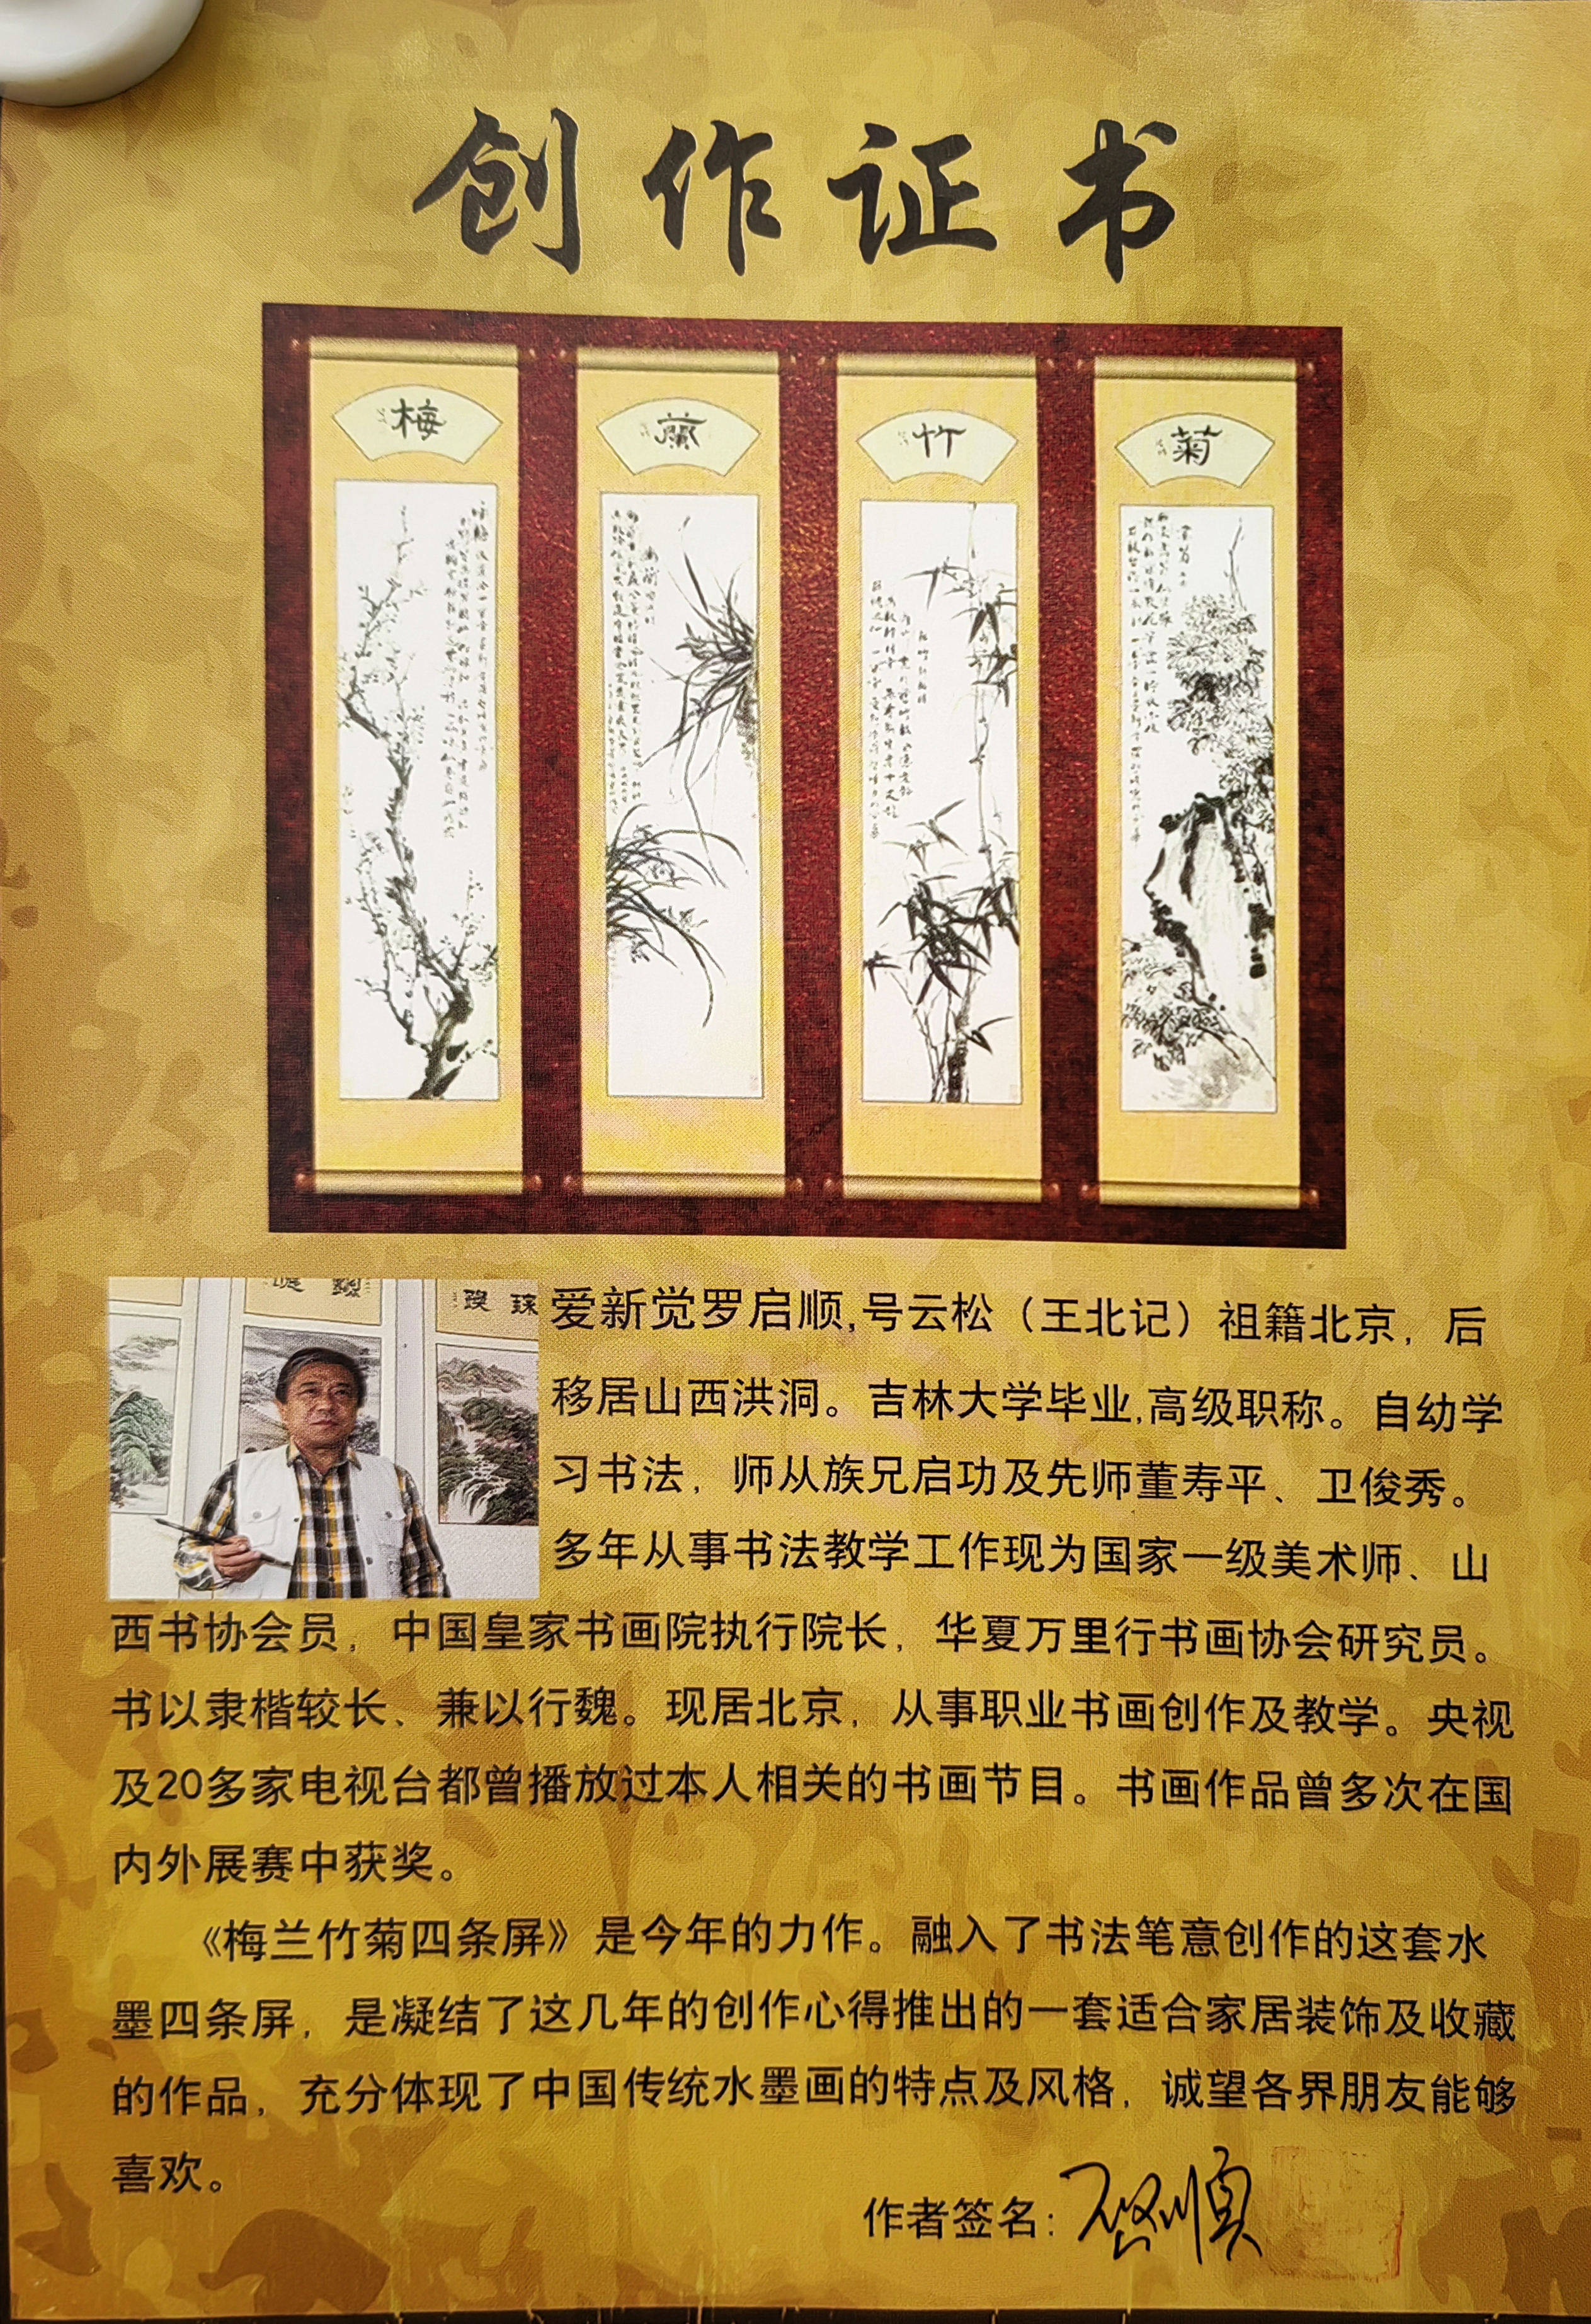 创作证书
梅
蘭
竹
菊
爱新觉罗启顺,号云松（王北记）祖籍北京，后
移居山西洪洞。吉林大学毕业,高级职称。自幼学
习书法，师从族兄启功及先师董寿平、卫俊秀。
多年从事书法教学工作现为国家一级美术师、山
西书协会员，中国皇家书画院执行院长，华夏万里行书画协会研究员。
书以隶楷较长、兼以行魏。现居北京，从事职业书画创作及教学。央视
及20多家电视台都曾播放过本人相关的书画节目。书画作品曾多次在国
内外展赛中获奖。
《梅兰竹菊四条屏》是今年的力作。融入了书法笔意创作的这套水
墨四条屏，是凝结了这几年的创作心得推出的一套适合家居装饰及收藏
的作品，充分体现了中国传统水墨画的特点及风格，诚望各界朋友能够
喜欢。
作者签名：启顺